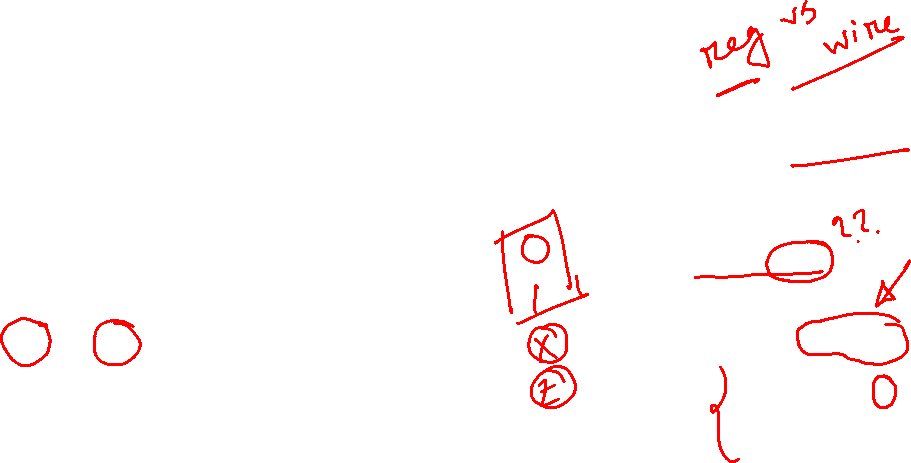 reg vs wire
??
0
1
X
Z
0